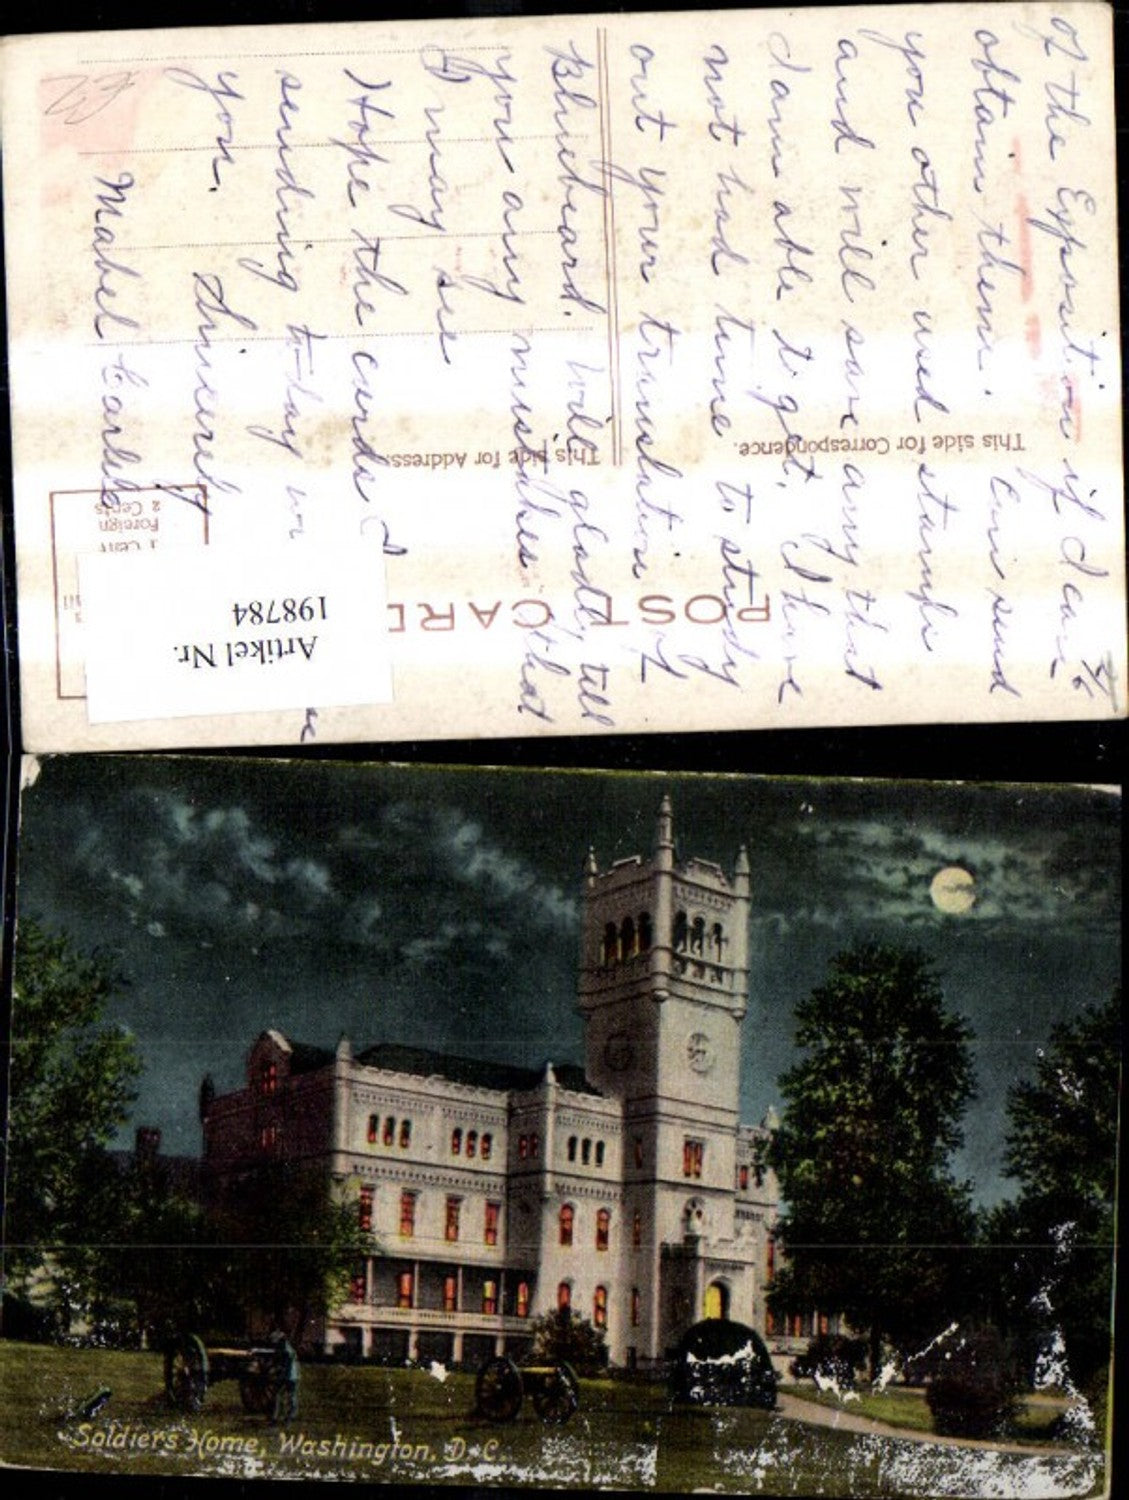 4/6
of the Exposition if I can
obtain them. Can send
you other used stamps
and will save any that
I am able to get. I have
not had time to study
out your translation of
Bluebeard. Will gladly tell
you any mistakes that
I may see
Hope the cards I
sending to-day
you.
Sincerely
Mabel
POST CARD
This side for Correspondence.
This side for Address.
1 Cent
Foreign
2 Cents
Artikel Nr.
198784
Soldier's Home, Washington, D. C.